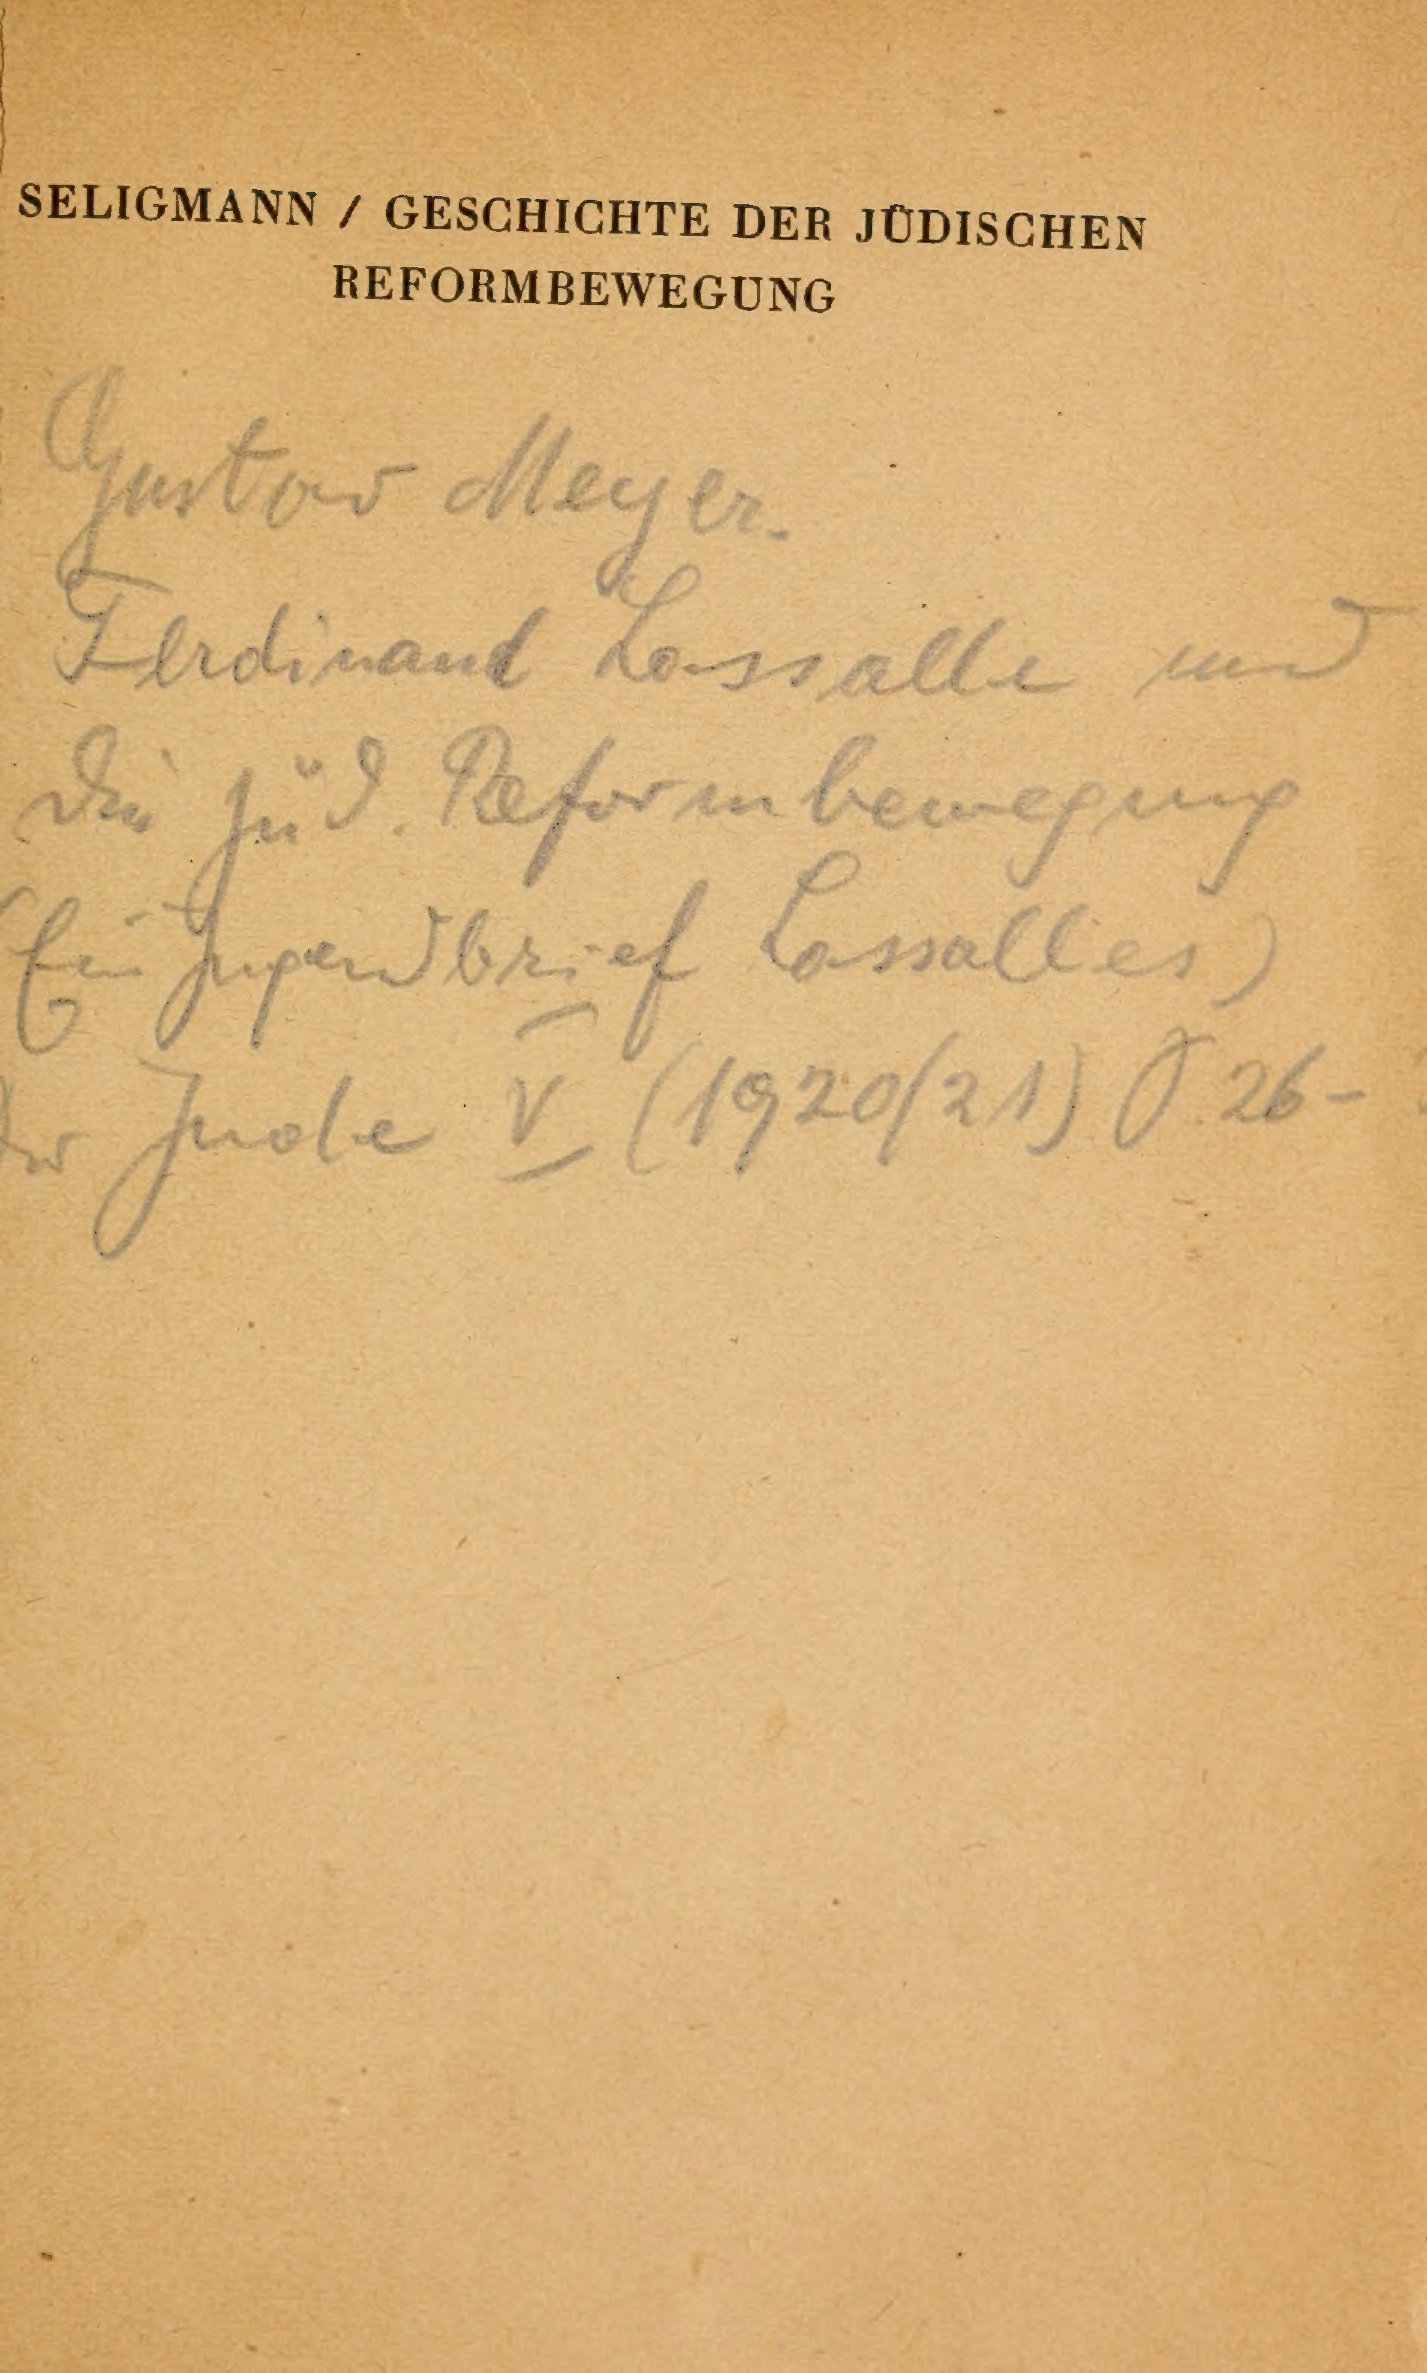 SELIGMANN / GESCHICHTE DER JÜDISCHEN
REFORMBEWEGUNG
Gustav Meyer.
Ferdinand Lassalle und
die jüd. Reformbewegung
(Ein Jugendbrief Lassalles)
Der Jude V (1920/21) S 26-